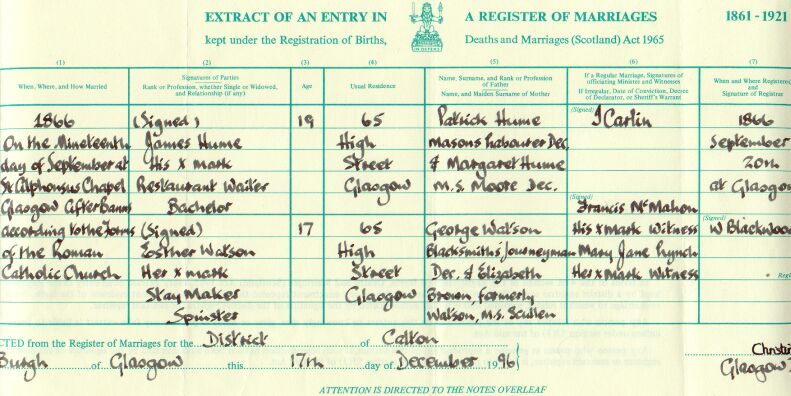 EXTRACT OF AN ENTRY IN A REGISTER OF MARRIAGES 1861 - 1921
kept under the Registration of Births, Deaths and Marriages (Scotland) Act 1965
(1) (2) (3) (4) (5) (6) (7)
When, Where, and How Married
Signatures of Parties
Rank or Profession, whether Single or Widowed, and Relationship (if any)
Age
Usual Residence
Name, Surname, and Rank or Profession of Father
Name, and Maiden Surname of Mother
If a Regular Marriage, Signatures of officiating Minister and Witnesses
If Irregular, Date of Conviction, Decree of Declarator, or Sheriff's Warrant
When and Where Registered and Signature of Registrar
1866
On the Nineteenth
day of September at
St Alphonsus Chapel
Glasgow After Banns
according to the Forms
of the Roman
Catholic Church
(Signed)
James Hume
His x mark
Restaurant Waiter
Bachelor
(Signed)
Esther Watson
Her x mark
Stay Maker
Spinster
19
17
65
High
Street
Glasgow
65
High
Street
Glasgow
Patrick Hume
Masons Labourer Dec.
& Margaret Hume
M.S. Moore Dec.
George Watson
Blacksmiths Journeyman
Dec. & Elizabeth
Brown, formerly
Watson, M.S. Scullen
(Signed) J Carlin
(Signed)
Francis McMahon
His x mark Witness
Mary Jane Lynch
Her x mark Witness
1866
September
20th
at Glasgow
(Signed)
W Blackwoo
Regi
CTED from the Register of Marriages for the District of Calton
Burgh of Glasgow this 17th day of December 19 96
Christi
Glasgow
ATTENTION IS DIRECTED TO THE NOTES OVERLEAF